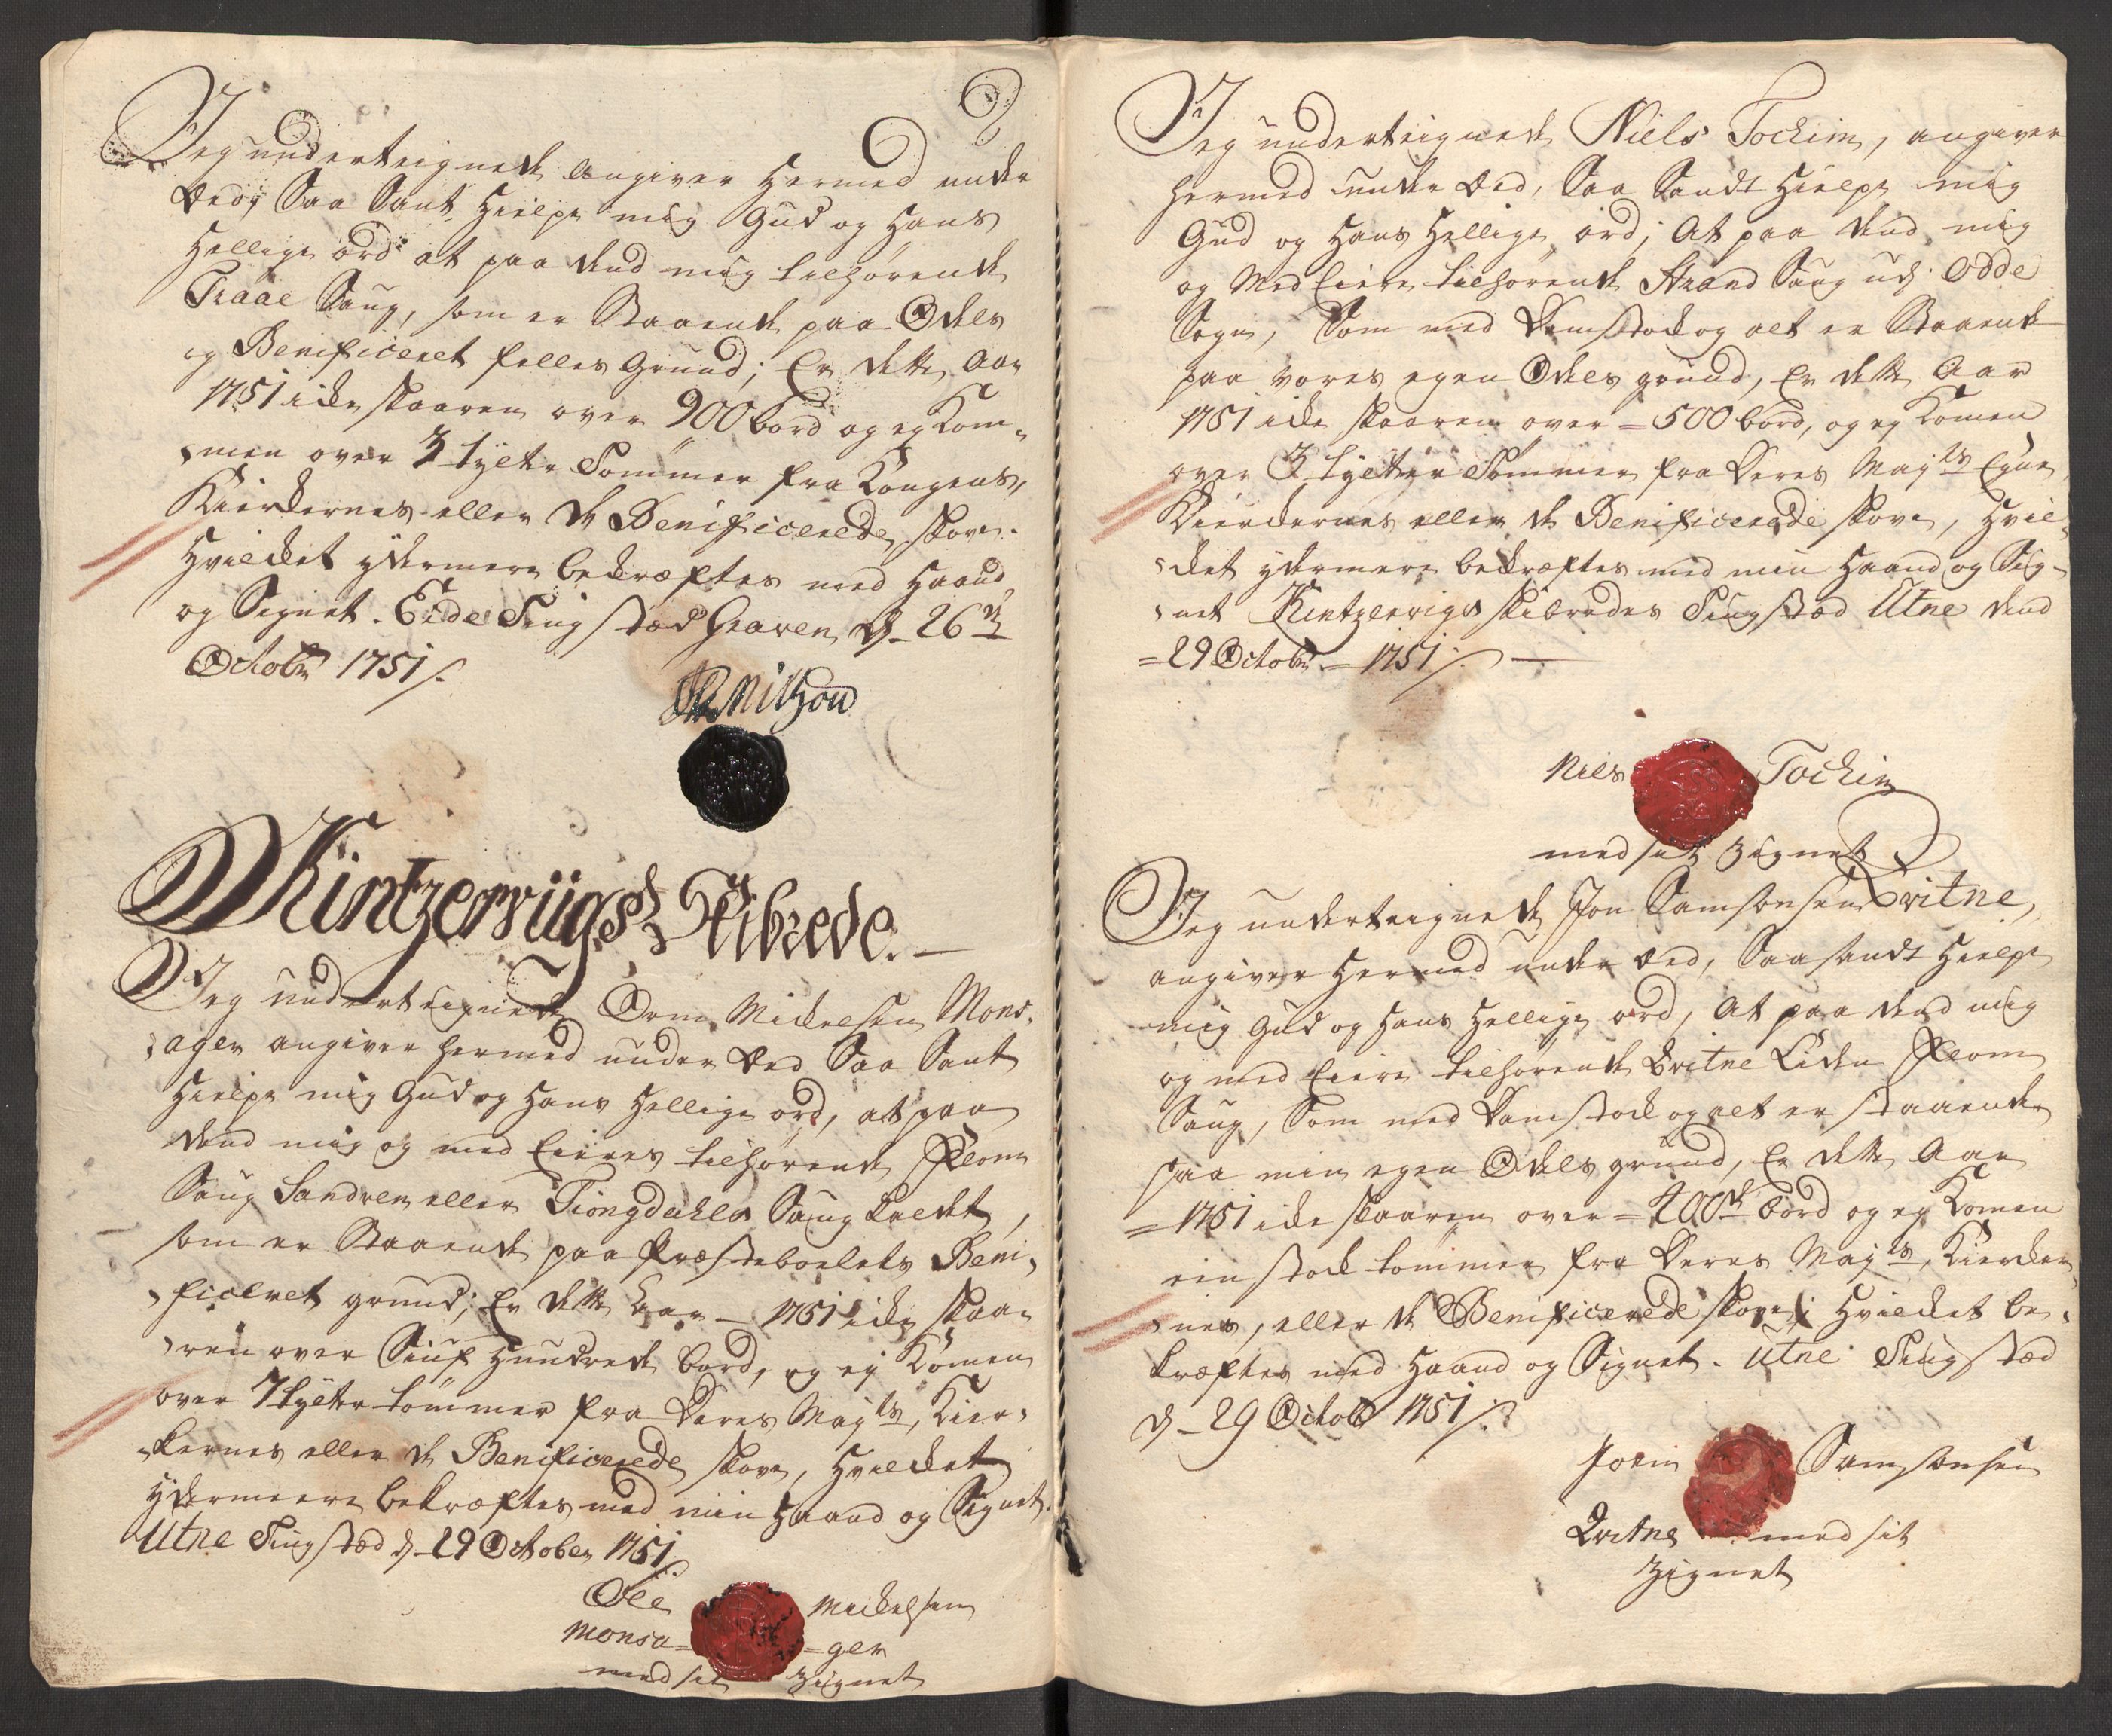 Jeg underteignede angiver hermed under
Eed, Saa Sant hielpe mig Gud og Hans
Hellige ord at paa dend mig tilhørende
Traae Saug, som er Staaende paa Odels
og Benificeret felles Grund; Er dette Aar
1751 icke skaaren over 900 bord og ej Kom-
men over 3 tylter Tømmer fra Kongens,
Kierckernes eller de Benificerede skove.
Hvilcket ydermere bekræftes med Haand
og Signet. Eide Ting stæd Graven d. 26de
Octobr 1751/.
Kintzerviigs Skibrede.
Jeg underteignede Orm Mickelsen Mons-
ager angiver hermed under Eed Saa Sant
hielpe mig Gud og Hans Hellige ord, at paa
dend mig og med Eieres tilhørende Flom
Saug Sandven eller Tiongdahls Saug kaldet,
som er Staaende paa Præsteboelets Beni-
ficeret grund; Er dette Aar 1751 icke skaa-
ren over Siuf Hundrede bord, og ej Komen
over 7 tylter tømmer fra Deres Mayts, Kier-
kernes eller de Benificerede skove, hvilcket
ydermeere bekræftes med min Haand og Signet.
Utne Tingstæd d. 29 October 1751/.
Ole Mickelsen
Monsa- -ger
med sit Zignet
Jeg underteignede Niels Tockim, angiver
hermed under Eed, Saa Sandt hielpe mig
Gud og Hans Hellige ord; At paa dend mig
og Med Eiere tilhørende Strand Saug udj Odde
Sogn, Som med Damstock og alt er Staaende
paa vores egen Odels grund, Er dette Aar
1751 icke skaaren over = 500 bord, og ej Komen
over 3 tylter Tømmer fra Deres Mayts Egne,
Kierckernes eller de Benificerede skove, hvil-
cket ydermere bekræftes med min Haand og Sig-
net Kintzervigs skibredes Tingstæd Utne dend
= 29 Octobr = 1751/.
Niels Tockim
med sit Zignet
Jeg underteignede Jon Samsonsen Qvitne,
angiver hermed under Eed, Saa sandt hielpe
mig Gud og Hans Hellige ord, At paa dend mig
og med Eiere tilhørende Qvitne Liden Flom
Saug, Som med Damstock og alt er staaende
paa min egen Odels grund, Er dette Aar
= 1751 icke skaaren over = 400de bord og ej Komen
ein stock tømmer fra Deres Mayts, Kiercker-
nes, eller de Benificerede skove; hvilcket be-
kræftes med Haand og Signet. Utne Tingstæd
d. 29 Octobr 1751/.
Joen Samsonsen
Qvitne med sit
Zignet